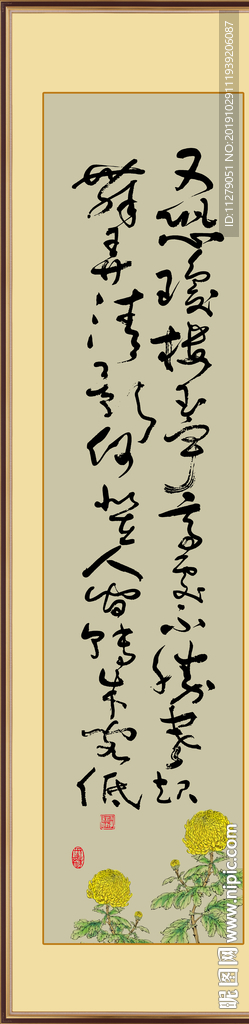 又恐瓊樓玉宇高處不勝寒起
舞弄清影何似在人間轉朱閣低
ID:11279051 NO:20191029111939206087
昵图网 www.nipic.com